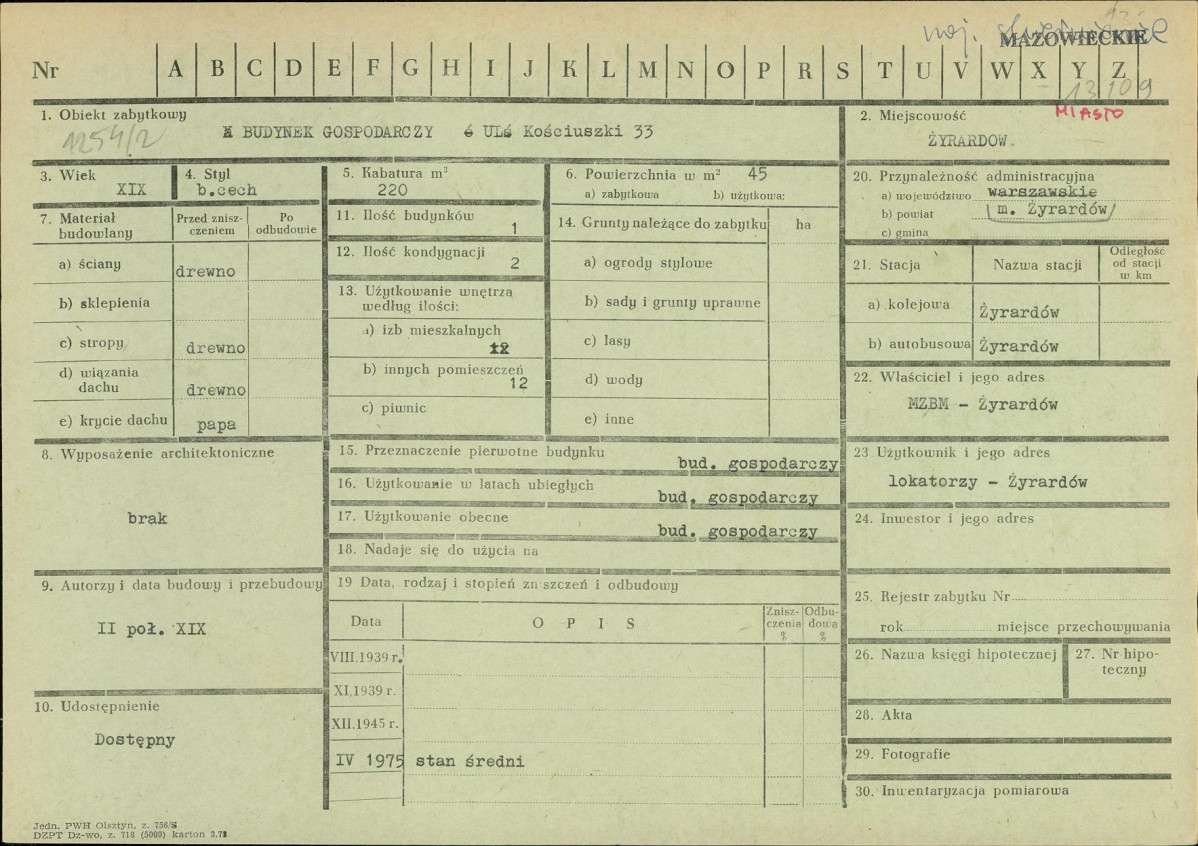 woj.
MAZOWIECKIE
Nr A B C D E F G H I J K L M N O P R S T U V W X Y Z
13109
1. Obiekt zabytkowy
1254/2
BUDYNEK GOSPODARCZY Ul. Kościuszki 33
2. Miejscowość
MIASTO
ŻYRARDOW
3. Wiek
XIX
4. Styl
b.cech
5. Kabatura m³
220
6. Powierzchnia w m² 45
a) zabytkowa b) użytkowa:
20. Przynależność administracyjna
a) województwo warszawskie
b) powiat m. Żyrardów
c) gmina
7. Materiał budowlany
Przed znisz-czeniem
Po odbudowie
a) ściany drewno
b) sklepienia
c) stropy drewno
d) wiązania dachu drewno
e) krycie dachu papa
11. Ilość budynków
1
12. Ilość kondygnacji
2
13. Użytkowanie wnętrza
według ilości:
a) izb mieszkalnych
12
b) innych pomieszczeń
12
c) piwnic
14. Grunty należące do zabytku ha
a) ogrody stylowe
b) sady i grunty uprawne
c) lasy
d) wody
e) inne
21. Stacja
Nazwa stacji
Odległość od stacji w km
a) kolejowa Żyrardów
b) autobusowa Żyrardów
22. Właściciel i jego adres
MZBM - Żyrardów
8. Wyposażenie architektoniczne
brak
15. Przeznaczenie pierwotne budynku
bud. gospodarczy
16. Użytkowanie w latach ubiegłych
bud. gospodarczy
17. Użytkowanie obecne
bud. gospodarczy
18. Nadaje się do użycia na
23 Użytkownik i jego adres
lokatorzy - Żyrardów
24. Inwestor i jego adres
9. Autorzy i data budowy i przebudowy
II poł. XIX
19 Data, rodzaj i stopień zniszczeń i odbudowy
Data
O P I S
Znisz-czenia %
Odbu-dowa %
VIII.1939 r.
XI.1939 r.
XII.1945 r.
IV 1975 stan średni
25. Rejestr zabytku Nr
rok miejsce przechowywania
26. Nazwa księgi hipotecznej
27. Nr hipo-teczny
10. Udostępnienie
Dostępny
28. Akta
29. Fotografie
30. Inwentaryzacja pomiarowa
Jedn. PWH Olsztyn, z. 756/S
DZPT Dz-wo, z. 718 (5000) karton 3.73